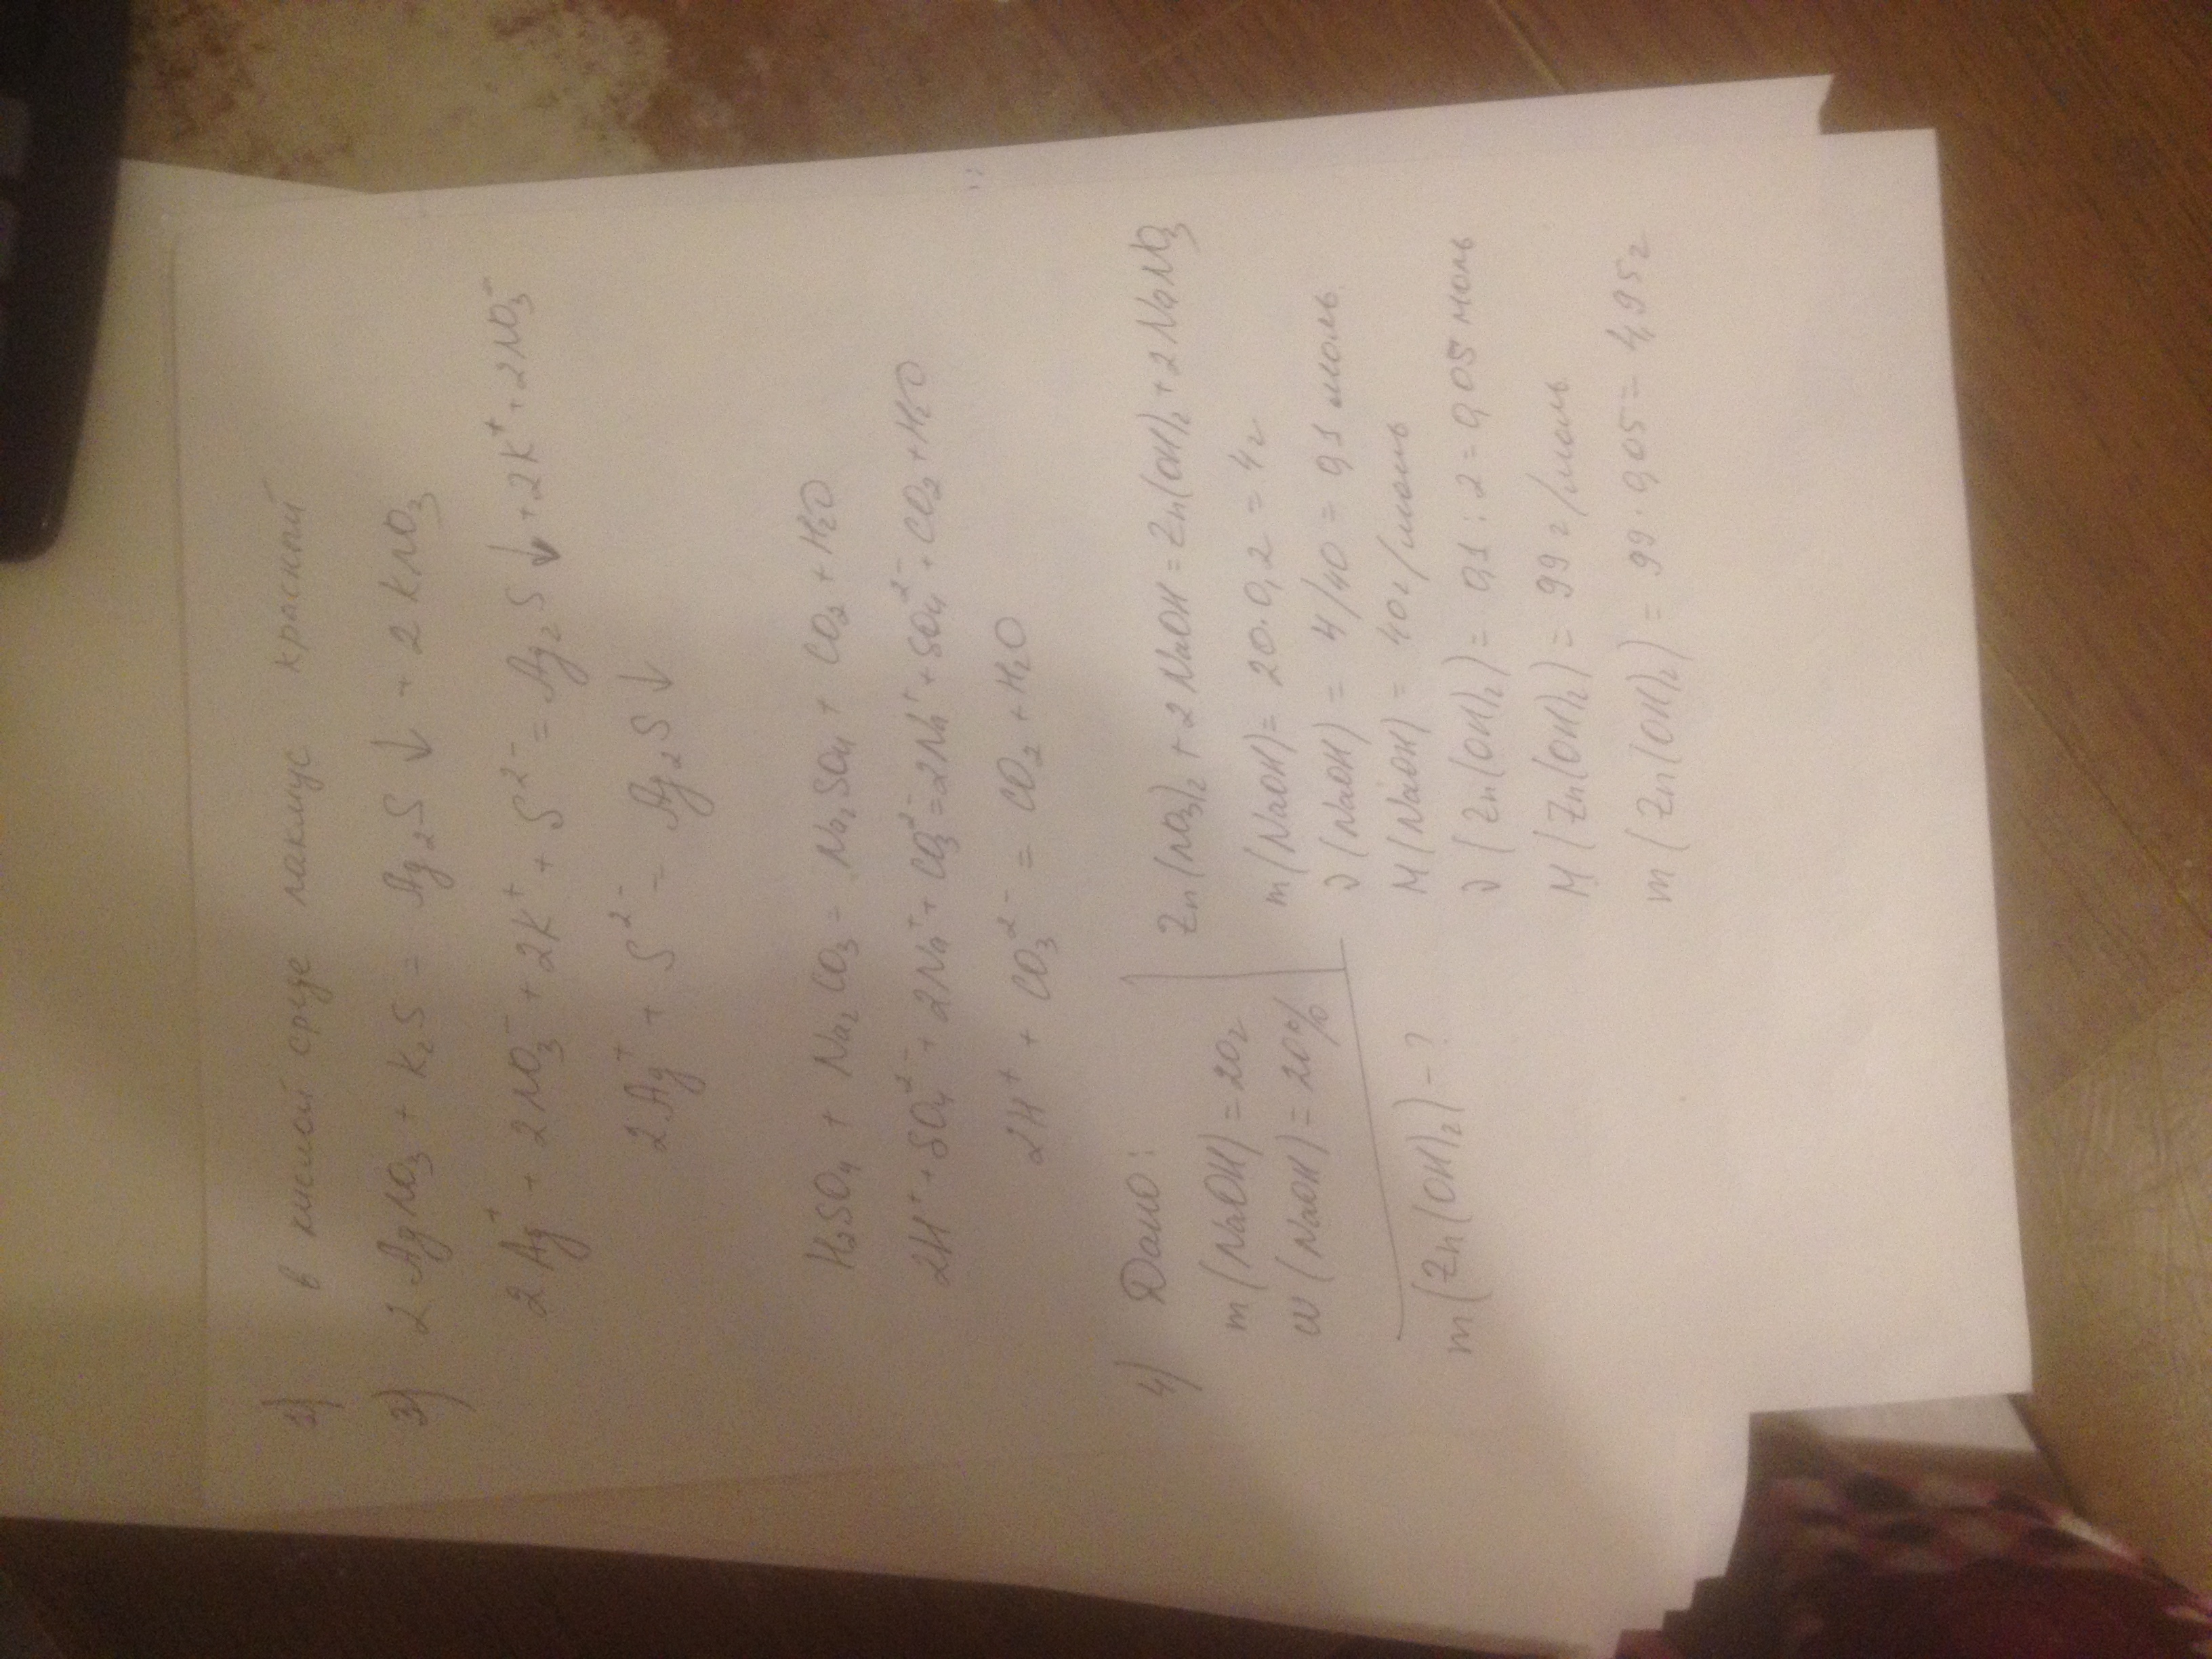 2) в кислой среде лакмус красный
3) 2AgNO₃ + K₂S = Ag₂S↓ + 2KNO₃
2Ag⁺ + 2NO₃⁻ + 2K⁺ + S²⁻ = Ag₂S↓ + 2K⁺ + 2NO₃⁻
2Ag⁺ + S²⁻ = Ag₂S↓
H₂SO₄ + Na₂CO₃ = Na₂SO₄ + CO₂ + H₂O
2H⁺ + SO₄²⁻ + 2Na⁺ + CO₃²⁻ = 2Na⁺ + SO₄²⁻ + CO₂ + H₂O
2H⁺ + CO₃²⁻ = CO₂ + H₂O
4) Дано:
m(NaOH) = 20г
w(NaOH) = 20%
m(Zn(OH)₂) - ?
Zn(NO₃)₂ + 2NaOH = Zn(OH)₂ + 2NaNO₃
m(NaOH) = 20·0,2 = 4г
ν(NaOH) = 4/40 = 0,1 моль
M(NaOH) = 40г/моль
ν(Zn(OH)₂) = 0,1 : 2 = 0,05 моль
M(Zn(OH)₂) = 99 г/моль
m(Zn(OH)₂) = 99·0,05 = 4,95г